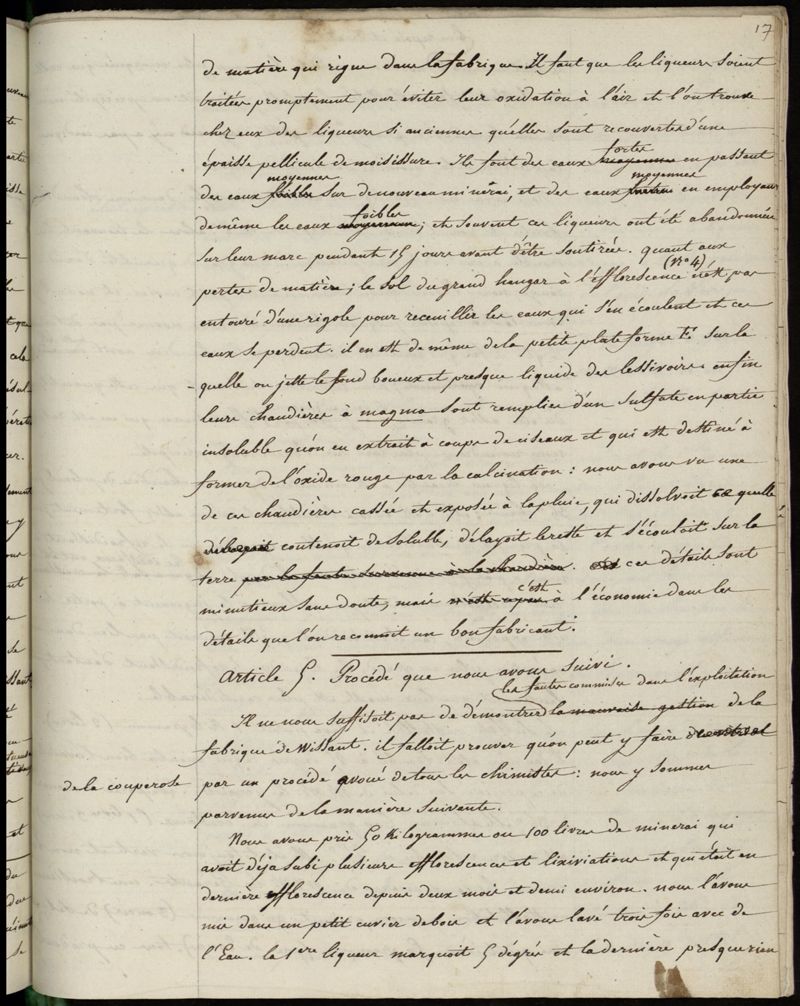 17
de matière qui règne dans la fabrique. Il faut que les liqueurs soient
traitées promptement pour éviter leur oxidation à l'air et l'on trouve
chez eux des liqueurs si anciennes qu'elles sont recouvertes d'une
épaisse pellicule de moisissure. Ils font des eaux moyennes fortes en passant
des eaux foibles moyennes sur de nouveau minérai, et des eaux moyennes en employant
de même les eaux moyennes foibles; et souvent ces liqueurs ont été abandonnées
sur leur marc pendant 15 jours avant d'être soutirées. quant aux
pertes de matière; le sol du grand hangar à l'éfflorescence (No 4) n'est pas
entouré d'une rigole pour receuillir les eaux qui s'en écoulent et ces
eaux se perdent. il en est de même de la petite plateforme sur la
quelle on jette le fond boueux et presque liquide des lessivoirs. enfin
leurs chaudières à magma sont remplies d'un sulfate en partie
insoluble qu'on en extrait à coups de ciseaux et qui est destiné à
former de l'oxide rouge par la calcination: nous avons vu une
de ces chaudières cassée et exposée à la pluie, qui dissolvoit ce qu'elle
délayoit contenoit de soluble, délayoit le reste et s'écouloit sur la
terre par la fente survenue à la chaudière. ces détails sont
minutieux sans doute, mais c'est à l'économie dans les
détails que l'on reconnoit un bon fabricant.
Article 5. Procédé que nous avons suivi.
Il ne nous suffisoit pas de démontrer la mauvaise gestion les fautes commises dans l'exploitation de la
fabrique de Wissant. il falloit prouver qu'on peut y faire
de la couperose
par un procédé avoué de tous les chimistes: nous y sommes
parvenus de la manière suivante.
Nous avons pris 50 Kilogrammes ou 100 livres de minerai qui
avoit déja subi plusieurs efflorescences et lixiviations et qui étoit en
dernière efflorescence depuis deux mois et demi environ. nous l'avons
mis dans un petit cuvier de bois et l'avons lavé trois fois avec de
l'Eau. la 1ere liqueur marquoit 5 dégrés et la dernière presque rien